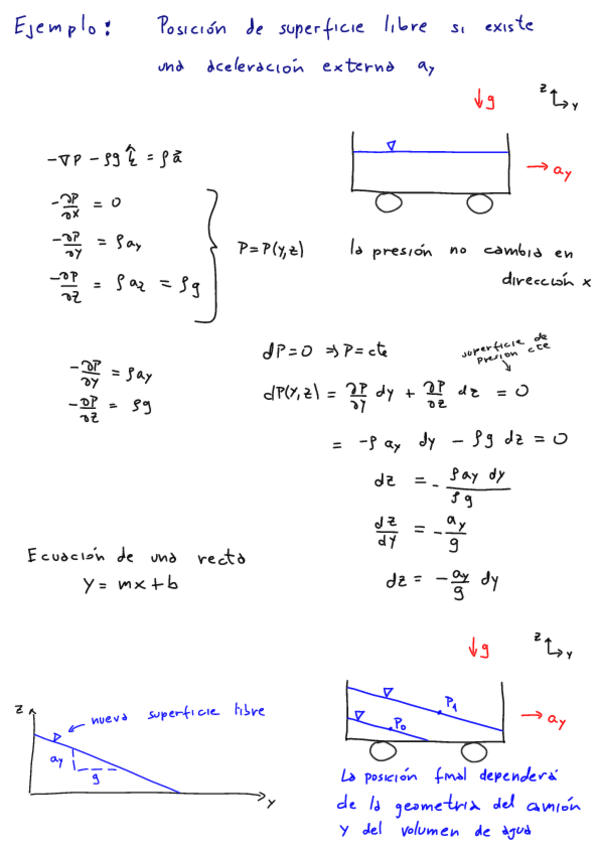 Ejemplo: Posición de superficie libre si existe
una aceleración externa ay
↓g
z
y
→ ay
-∇P - ρg k̂ = ρā
-∂P/∂x = 0
-∂P/∂y = ρay
-∂P/∂z = ρaz = ρg
P = P(y,z)
la presión no cambia en
dirección x
dP=0 ⇒ P=cte
superficie de
presión cte
-∂P/∂y = ρay
-∂P/∂z = ρg
dP(y,z) = ∂P/∂y dy + ∂P/∂z dz = 0
= -ρ ay dy - ρg dz = 0
dz = - ρ ay dy / ρg
dz/dy = - ay/g
dz = - ay/g dy
Ecuación de una recta
y = mx + b
↓g
z
y
z
nueva superficie libre
ay
g
y
P1
P0
→ ay
La posición final dependerá
de la geometria del camión
y del volumen de agua